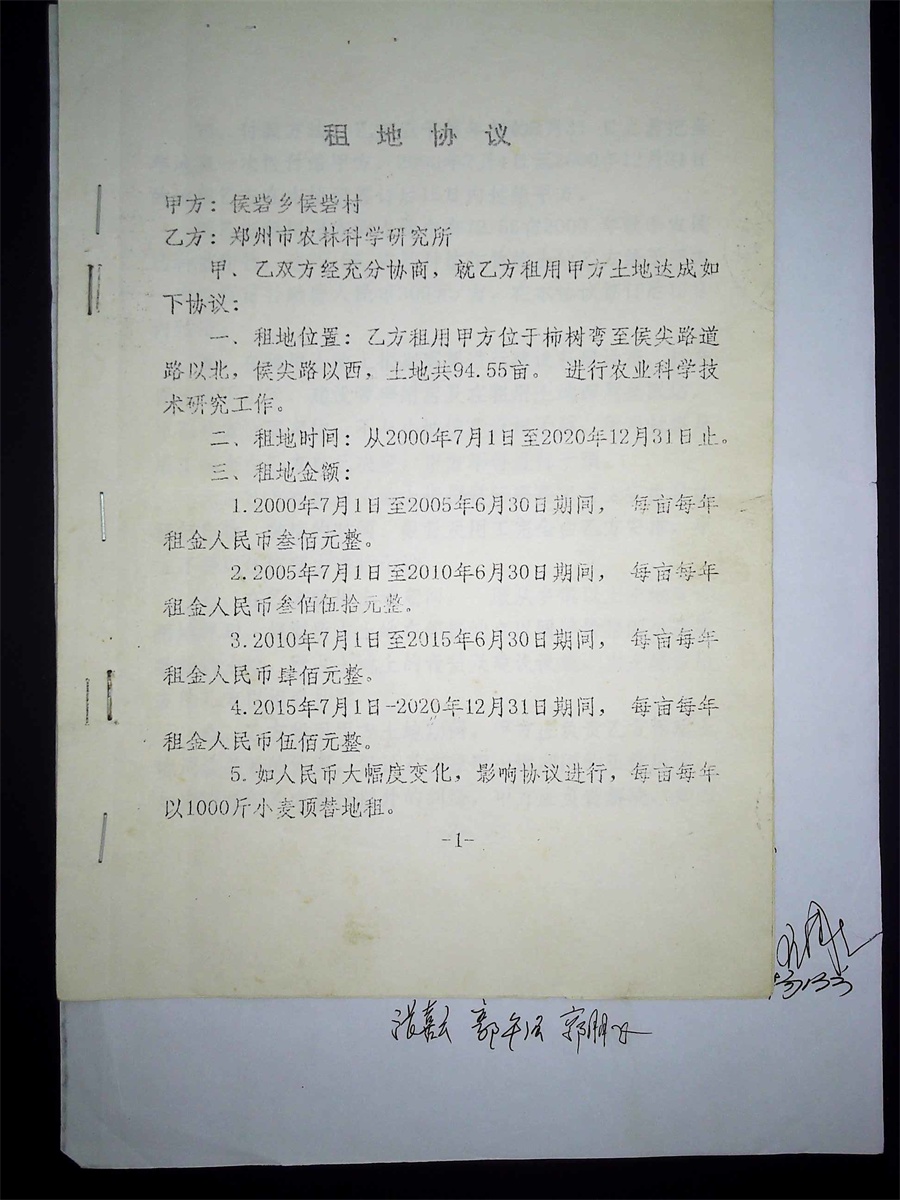 租地协议
甲方：侯砦乡侯砦村
乙方：郑州市农林科学研究所
甲、乙双方经充分协商，就乙方租用甲方土地达成如
下协议：
一、租地位置：乙方租用甲方位于柿树弯至侯尖路道
路以北，侯尖路以西，土地共94.55亩。 进行农业科学技
术研究工作。
二、租地时间：从2000年7月1日至2020年12月31日止。
三、租地金额：
1.2000年7月1日至2005年6月30日期间， 每亩每年
租金人民币叁佰元整。
2.2005年7月1日至2010年6月30日期间， 每亩每年
租金人民币叁佰伍拾元整。
3.2010年7月1日至2015年6月30日期间， 每亩每年
租金人民币肆佰元整。
4.2015年7月1日-2020年12月31日期间， 每亩每年
租金人民币伍佰元整。
5.如人民币大幅度变化，影响协议进行，每亩每年
以1000斤小麦顶替地租。
-1-